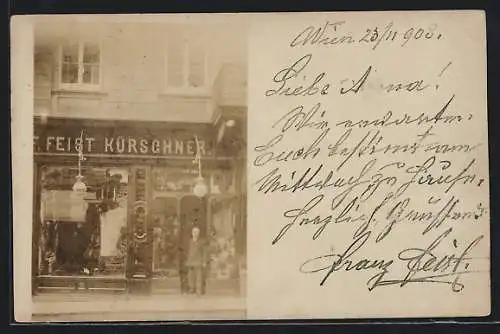 F. FEIST KÜRSCHNER.
Wien 23/11 908.
Liebe !
Wir erwarten
Euch bestimt am
Mittwoch zu Hause.
Herzlich Grüssend
Franz Feist.